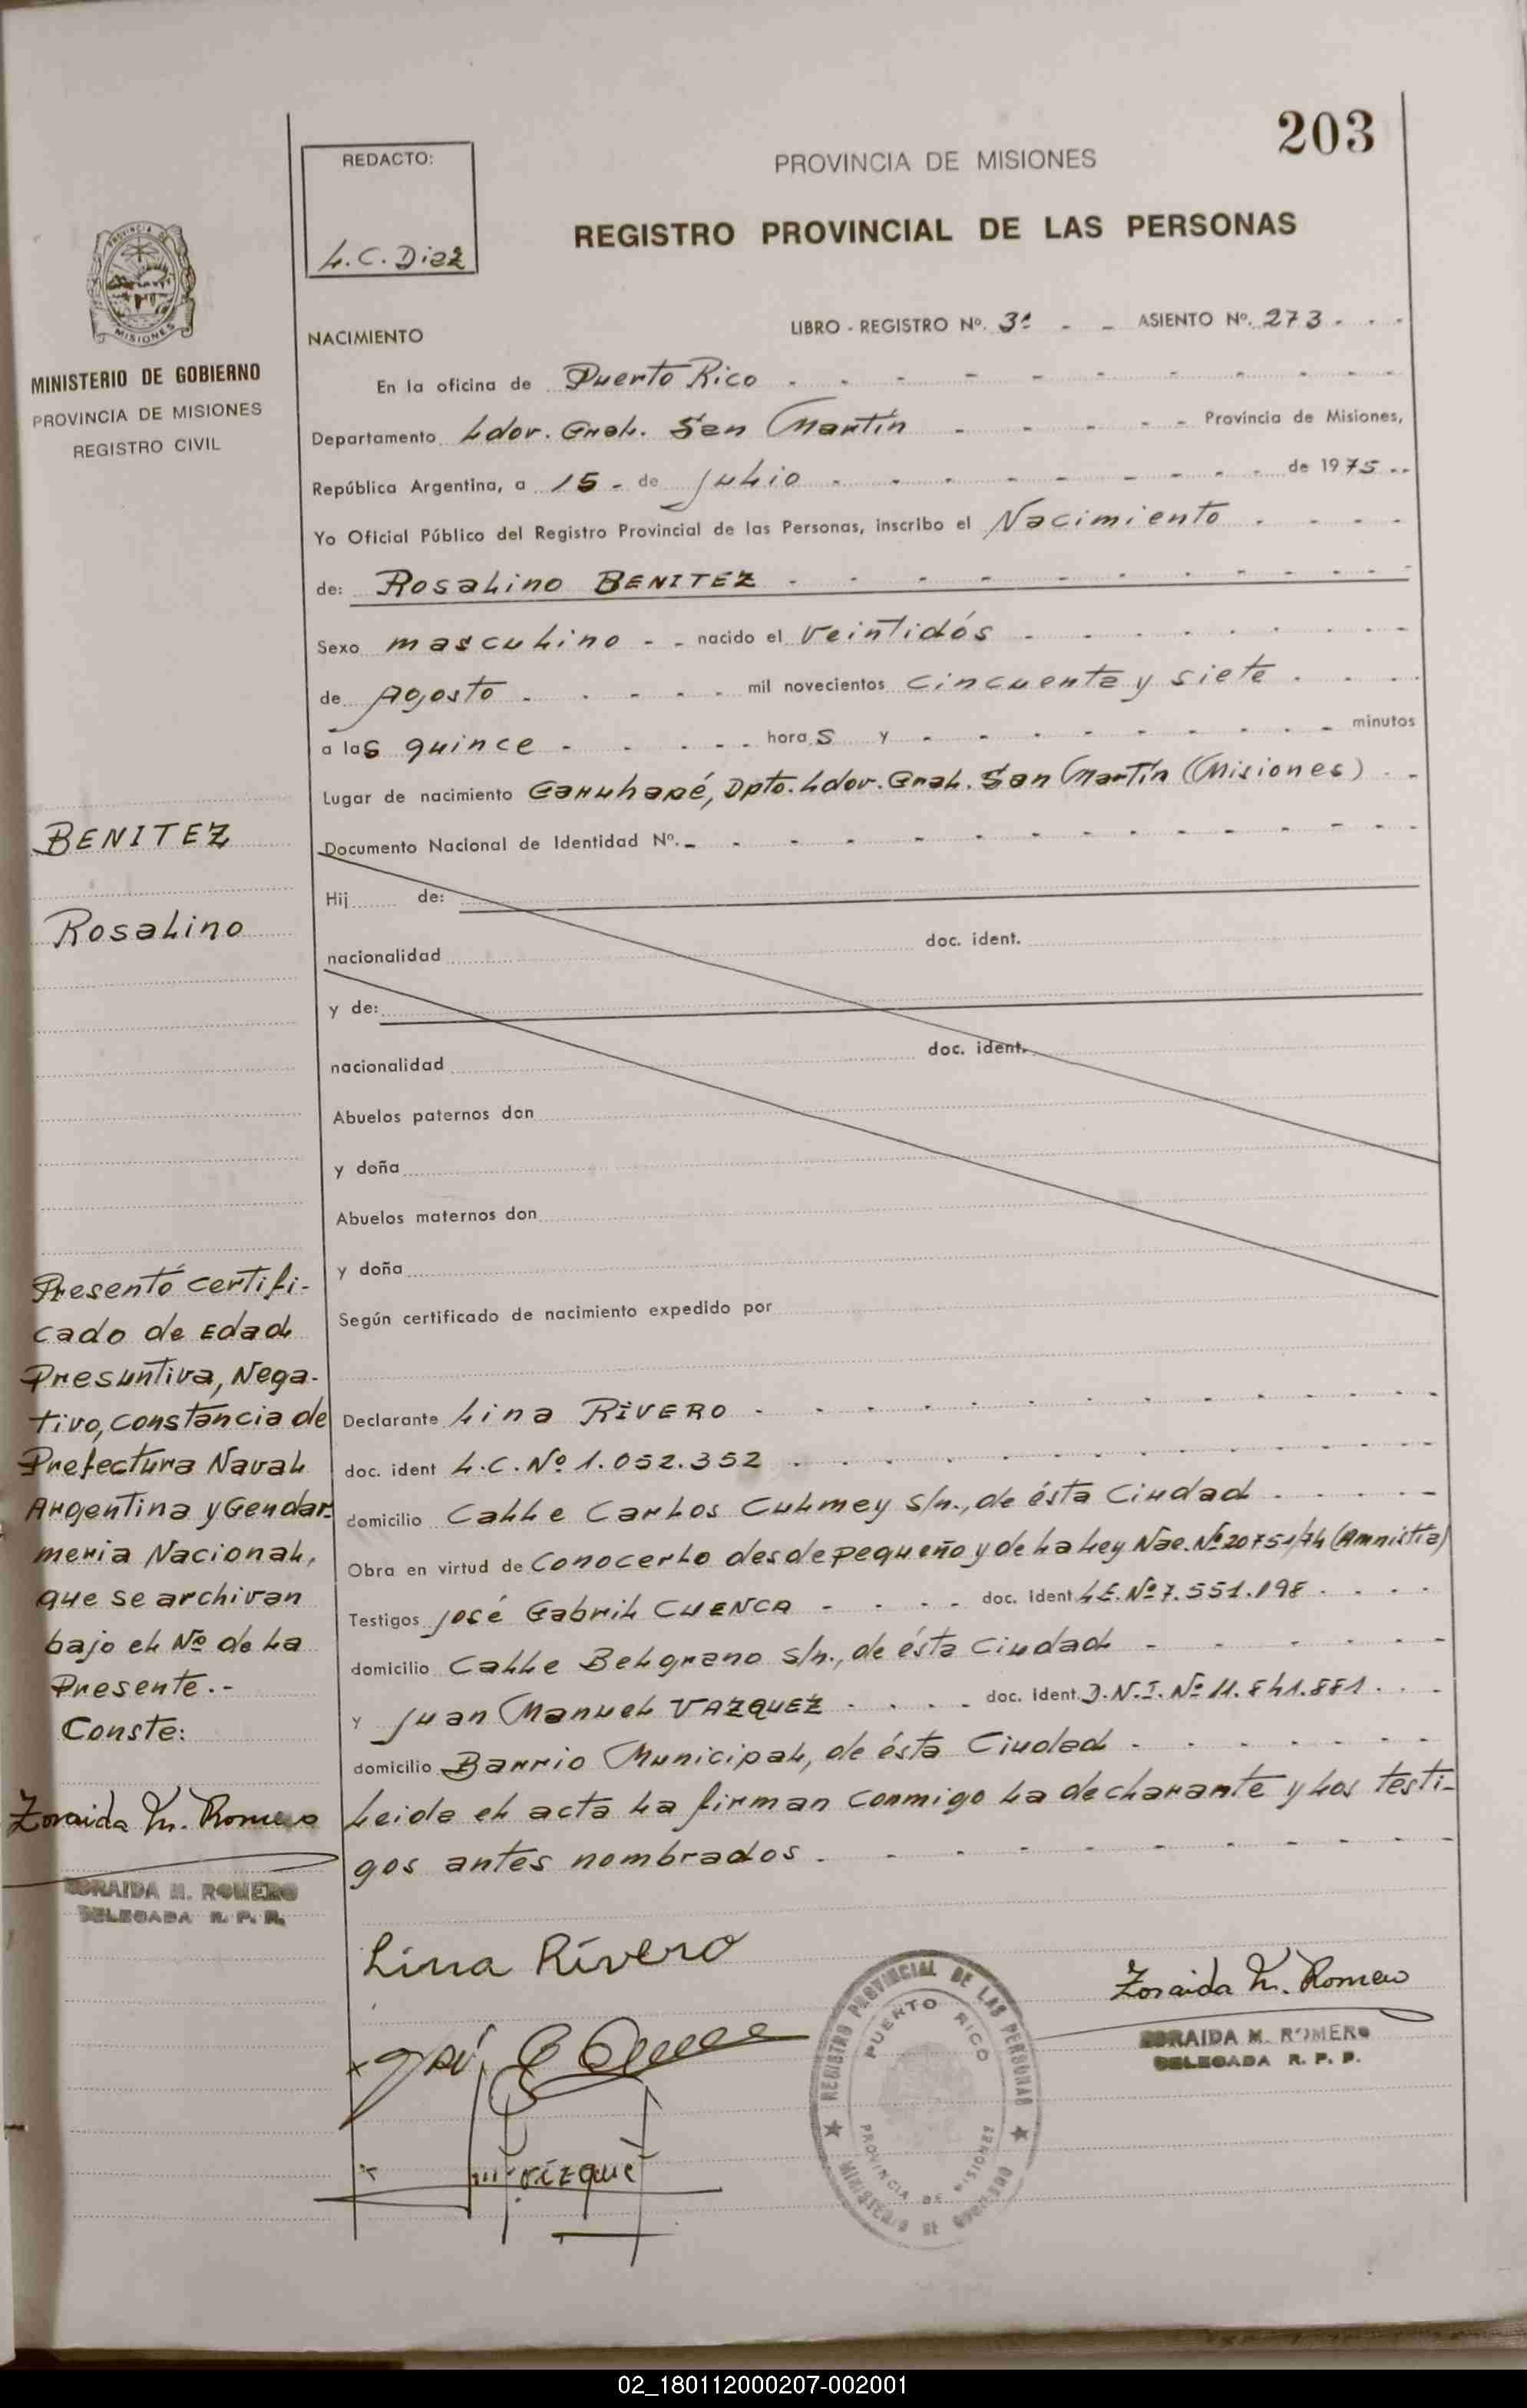 203
REDACTO:
L.C. Diaz
PROVINCIA DE MISIONES
REGISTRO PROVINCIAL DE LAS PERSONAS
PROVINCIA DE
MISIONES
MINISTERIO DE GOBIERNO
PROVINCIA DE MISIONES
REGISTRO CIVIL
NACIMIENTO LIBRO - REGISTRO Nº. 3º - - ASIENTO Nº. 273 - - -
En la oficina de Puerto Rico
Departamento Ldor. Gral. San Martín Provincia de Misiones,
República Argentina, a 15 - de Julio de 1975 --
Yo Oficial Público del Registro Provincial de las Personas, inscribo el Nacimiento
de: Rosalino BENITEZ
Sexo masculino - - nacido el veintidós
de Agosto mil novecientos cincuenta y siete
a las quince horas y minutos
Lugar de nacimiento Garuhapé, Dpto. Ldor. Gral. San Martín (Misiones)
Documento Nacional de Identidad Nº.
Hij de:
nacionalidad doc. ident.
y de:
nacionalidad doc. ident.
Abuelos paternos don
y doña
Abuelos maternos don
y doña
Según certificado de nacimiento expedido por
Declarante Lina RIVERO
doc. ident L.C. Nº 1.052.352
domicilio Calle Carlos Culmey s/n., de ésta Ciudad
Obra en virtud de Conocerlo desde pequeño y de la Ley Nac. Nº 20751/74 (Amnistía)
Testigos José Gabril CUENCA doc. ident L.E. Nº 7.551.198
domicilio Calle Belgrano s/n., de ésta Ciudad
y Juan Manuel VAZQUEZ doc. ident. D.N.I. Nº 11.841.881
domicilio Barrio Municipal, de ésta Ciudad
Leida el acta la firman conmigo la declarante y los testi-
gos antes nombrados.
BENITEZ
Rosalino
Presentó certifi-
cado de Edad
Presuntiva, Nega-
tivo, constancia de
Prefectura Naval
Argentina y Gendar-
meria Nacional,
que se archivan
bajo el Nº de la
Presente.-
Conste:
Zoraida M. Romero
ZORAIDA M. ROMERO
DELEGADA R. P. P.
Lina Rivero
José G Cuenca
REGISTRO PROVINCIAL DE LAS PERSONAS
PUERTO RICO
PROVINCIA DE MISIONES
MINISTERIO DE GOBIERNO
Zoraida M. Romero
ZORAIDA M. ROMERO
DELEGADA R. P. P.
02_180112000207-002001